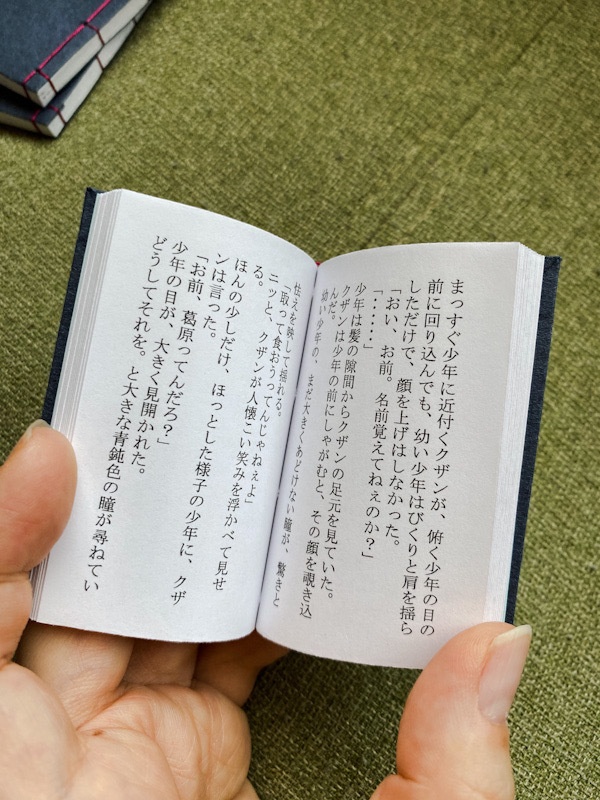 まっすぐ少年に近付くクザンが、俯く少年の目の
前に回り込んでも、幼い少年はびくりと肩を揺ら
しただけで、顔を上げはしなかった。
「おい、お前。名前覚えてねぇのか？」
「・・・・・」
少年は髪の隙間からクザンの足元を見ていた。
クザンは少年の前にしゃがむと、その顔を覗き込
んだ。
幼い少年の、まだ大きくあどけない瞳が、驚きと
怯えを映して揺れる。
「取って食おうってんじゃねぇよ」
ニッと、クザンが人懐こい笑みを浮かべて見せ
る。
ほんの少しだけ、ほっとした様子の少年に、クザ
ンは言った。
「お前、葛原ってんだろ？」
少年の目が、大きく見開かれた。
どうしてそれを。と大きな青鈍色の瞳が尋ねてい